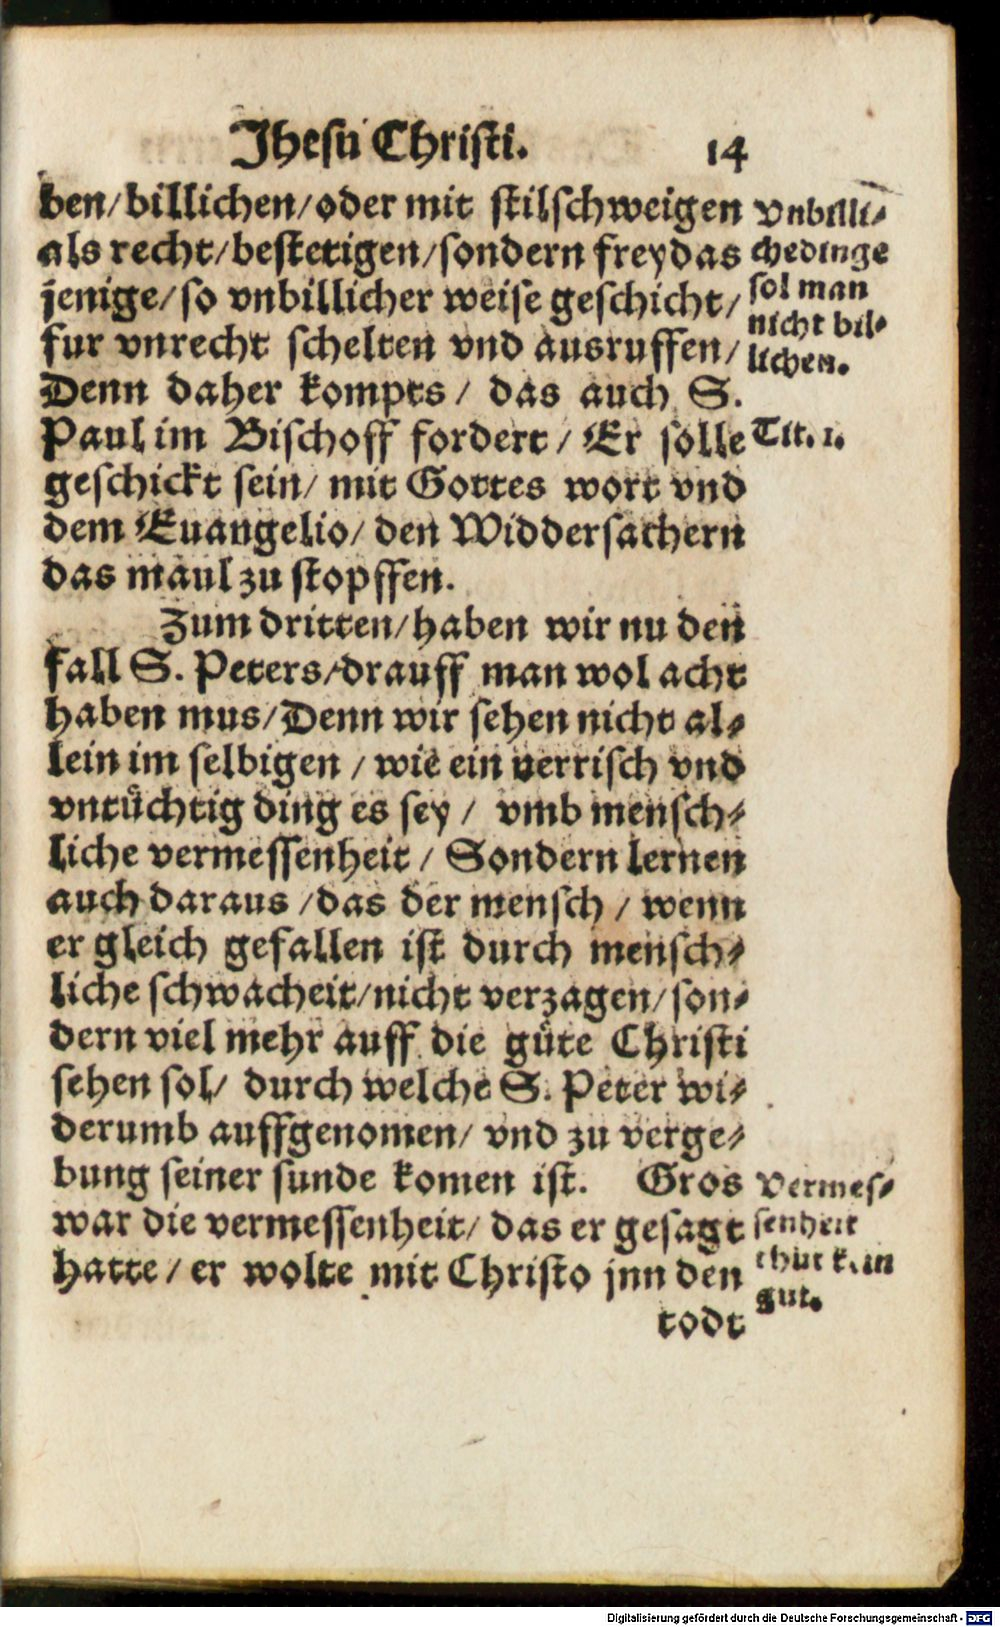 Jhesu Christi. 14
ben/ billichen/ oder mit stilschweigen
als recht/ bestetigen/ sondern frey das
jenige/ so vnbillicher weise geschicht/
fur vnrecht schelten vnd ausruffen/
Denn daher kompts/ das auch S.
Paul im Bischoff fordert/ Er solle
geschickt sein/ mit Gottes wort vnd
dem Euangelio/ den Widdersachern
das maul zu stopffen.
Zum dritten/ haben wir nu den
fall S. Peters/ drauff man wol acht
haben mus/ Denn wir sehen nicht al-
lein im selbigen/ wie ein nerrisch vnd
vntüchtig ding es sey/ vmb mensch-
liche vermessenheit/ Sondern lernen
auch daraus/ das der mensch/ wenn
er gleich gefallen ist durch mensch-
liche schwacheit/ nicht verzagen/ son-
dern viel mehr auff die güte Christi
sehen sol/ durch welche S. Peter wi-
derumb auffgenomen/ vnd zu verge-
bung seiner sunde komen ist. Gros
war die vermessenheit/ das er gesagt
hatte/ er wolte mit Christo jnn den
todt
Vnbilli-
che dinge
sol man
nicht bil-
lichen.
Tit. 1.
Vermes-
senheit
thut kein
gut.
Digitalisierung gefördert durch die Deutsche Forschungsgemeinschaft - DFG